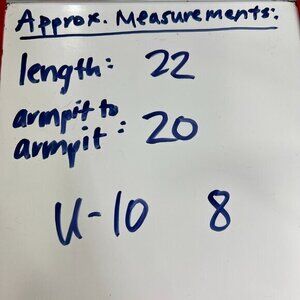 Approx. Measurements:
length: 22
armpit to
armpit: 20
U-10 8